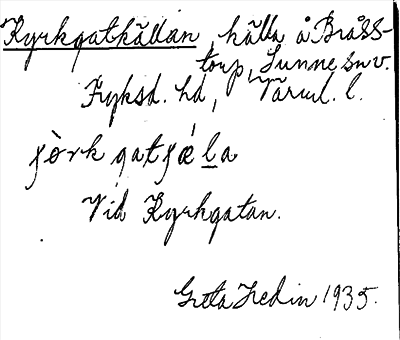 Kyrkgatkällan, källa å Bråss-
torp, Sunne sn v.
Fryksd. hd, Värml. l.
ʃòrk gatʃǽla
Vid Kyrkgatan.
Greta Hedin 1935.